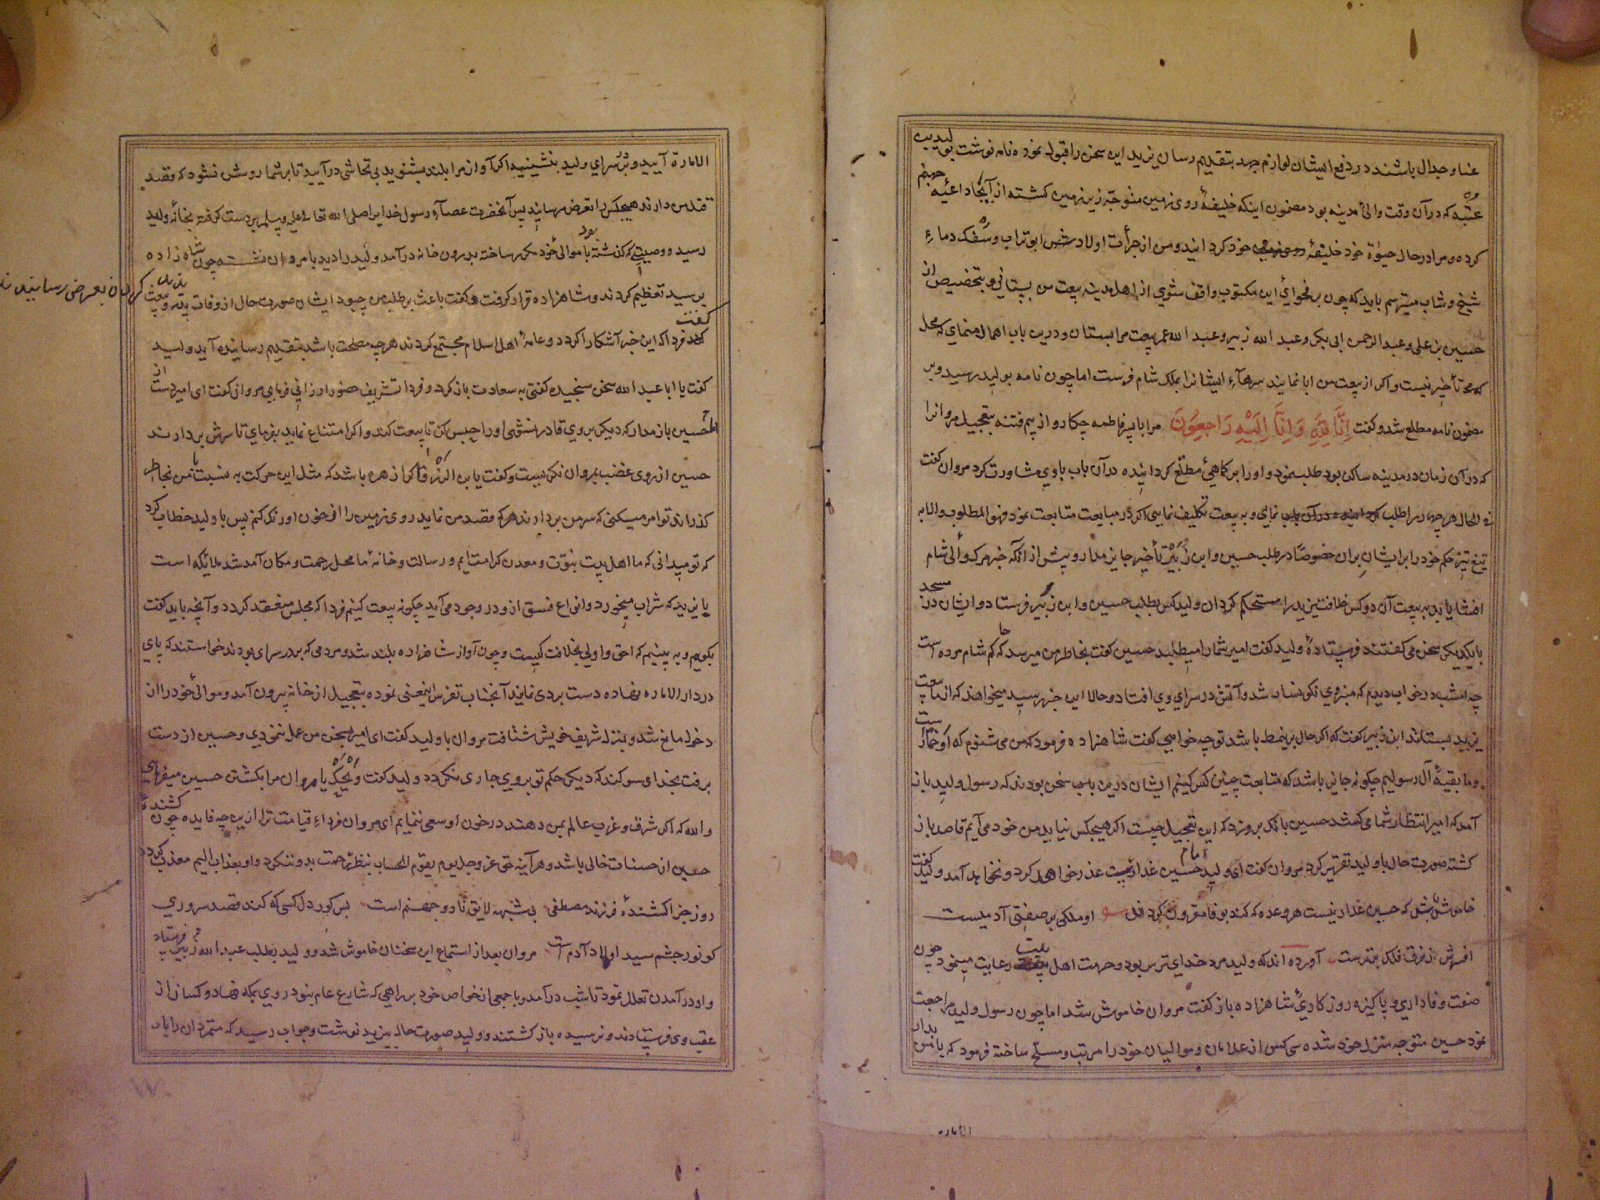 عنا و جدال باشند در دفع ایشان لوازم جهد بتقدیم رسان یزید این سخن را قبول نموده نامه نوشت بولید بن
عتبه که در آن وقت والی مدینه بود مضمون اینکه خلیفهٔ روی زمین متوجه زیر زمین کشته از اینجا داعیه جهنم
کرده و مرا در حال حیوة خود خلیفهٔ خود کردانید و من از جرأت اولاد ابو تراب و سفک دماء
شیخ و شاب میترسم باید که چون بر فحوای این مکتوب واقف شوی از اهل مدینه بیعت من بستانی و بتخصیص از
حسین بن علی و عبد الرحمن ابی بکر و عبد الله زبیر و عبد الله عمر بیعت مرا بستان و درین باب اهمال منمای که محل
تأخیر نیست و اکر از بیعت من ابا نمایند سرهاء ایشانرا بملک شام فرست اما چون نامه بولید رسید و بر
مضمون نامه مطلع شد و کفت اِنَّا لِلّٰهِ وَ اِنَّا اِلَیْهِ رَاجِعُونَ مرا با پسر فاطمه چکار و از بیم فتنه بتعجیل مروانرا
که در آن زمان در مدینه ساکن بود طلب نمود و او را بر کماهی مطلع کردانیده در آن باب با وی مشاورت کرد مروان کفت
فی الحال هر چهار را طلب نمایی و به بیعت تکلیف نمایی اکر در مبایعت متابعت نمود فهو المطلوب و الا به
تیغ تیز حکم خود را بر ایشان بران خصوصا در طلب حسین و ابن زبیر تأخیر جایز مدار و پیش از آنکه خبر مرک والی شام
افشا یابد به بیعت آن دو کس خلافت یزید را مستحکم کردان ولید کس بطلب حسین و ابن زبیر فرستاد و ایشان در مسجد
با یکدیکر سخن می کفتند فرستادهٔ ولید کفت امیر شما را میطلبد حسین کفت بخاطر من میرسد که حاکم شام مرده است
چه امشب در خواب دیدم که منبر وی نکونسار شد و آتش در سرای وی افتاد و حالا این خبر رسید میخواهند که از ما بیعت
یزید بستانند ابن زبیر کفت که اکر حال برینمط باشد توجه خواهی کفت شاهزاده فرمود که من می شنوم که او خمار است
و ما بقیهٔ آل رسولیم چکونه جایز باشد که متابعت چنین کس کنیم ایشان درین باب سخن بودند که رسول ولید باز
آمد که امیر انتظار شما می کشد حسین بانک برو زد که این تعجیل چیست اکر هیچکس نیاید من خود می آیم قاصد باز
کشته صورت حال با ولید تقریر کرد مروان کفت ای ولید امام حسین غدار نیست عذر خواهد کرد و نخواهد آمد ولید کفت
خاموش باش که حسین غدار نیست هر وعده که کند بوفا مقرون کرداند او ملکی بر صفتی آدمیست
افسرش از فرقی فلک برترست آورده اند که ولید مرد خدای ترس بود و حرمت اهل بیت رعایت مینمود چون
صفت وفاداری و پاکیزه روزکاری شاهزاده باز کفت مروان خاموش شد اما چون رسول ولید مراجعت
نمود حسین متوجه منزل خود شده سی کس از غلامان و موالیان خود را مرتب و مسلح ساخته فرمود که با من بدار
الاماره
الاماره آیید و بر در سرای ولید بنشینید اکر آواز مرا بلند بشنوید بی تحاشی در آیید تا بر شما روشن نشود که قصد
قتل من دارند هیچکس را تعرض مرسانید پس آنحضرت عصاء رسول خدا صلی الله تعالی علیه و سلم بر دست کرفته بخانهٔ ولید
رسید و وصیتی که کذشته بود با موالی خود مکرر ساخته بدرون خانه درآمد ولید را دید با مروان نشسته چون شاه زاده
برسید تعظیم کردند و شاهزاده قرار کرفت و کفت باعث بر طلب من چه بود ایشان صورت حال از وفات پدر و بیعت یزید
کردان بعرض رسانیدند
کفت فردا که این خبر آشکارا کردد و عامهٔ اهل اسلام مجتمع کردند هر چه مصلحت باشد بتقدیم رسانیده آید ولید
کفت یا ابا عبد الله سخن سنجیده کفتی به سعادت باز کرد و فردا تشریف حضور ارزانی فرمای مروان کفت ای امیر دست از
حسین باز مدار که دیکر بر وی قادر نشوی او را حبس کن تا بیعت کند و اکر امتناع نماید بفرمای تا سرش بردارند
حسین از روی غضب بمروان نکریست و کفت یا بن الزرقا کرا زهره باشد که مثل این حرکت به نسبت با من بخاطر
کذراند تو امر میکنی که سر من بردارند هر که قصد من نماید روی زمین را از خون او رنک کنم پس با ولید خطاب کرد
که تو میدانی که ما اهل بیت نبوت و معدن کرامتایم و رسالت و خانهٔ ما محل رحمت و مکان آمد شد ملایکه است
با یزید که شراب میخورد و انواع فسق ازو در وجود می آید چکونه بیعت کنیم فردا که مجلس منعقد کردد و آنچه باید کفت
بکویم و به بینیم که احق و اولی بخلافت کیست و چون آواز شاهزاده بلند شد و مردمی که بر در سرای بودند خواستند که پای
در دار الاماره نهاده دست بردی نمایند آنجناب تفرس اینمعنی نموده بتعجیل از خانه بیرون آمد و موالی خود را از
دخول مانع شد و بمنزل شریف خویش شتافت مروان با ولید کفت ای امیر بسخن من عمل ننمودی و حسین از دست
برفت بخدای سوکند که دیکر حکم تو بر وی جاری نکردد ولید کفت ویحک یا مروان مرا بکشتن حسین میفرمایی
والله که اکر شرق و غرب عالم بمن دهند در خون او سعی ننمایم ای مروان فرداء قیامت ترا ازین چه فایده چون کشندهٔ
حسین از حسنات خالی باشد و هر آینه حق عز و جل یوم یقوم الحساب بنظر رحمت بدو ننکرد و او بعذاب الیم معذب کردد
روز جزا کشندهٔ فرزند مصطفی بی شبهه لایق نار و جهنم است بس کور دل کسی که کند قصد سروری
کو نور چشم سید اولاد آدم است مروان بعد از استماع این سخنان خاموش شد و ولید بطلب عبد الله زبیر فرستاد
و او در آمدن تعلل نمود تا شب درآمد و با جمعی از خواص خود بر راهی که شارع عام نبود روی بمکه نهاد و کسان از
عقب وی فرستادند و نرسیده باز کشتند و ولید صورت حال به یزید نوشت و جواب رسید که متمردان را باد